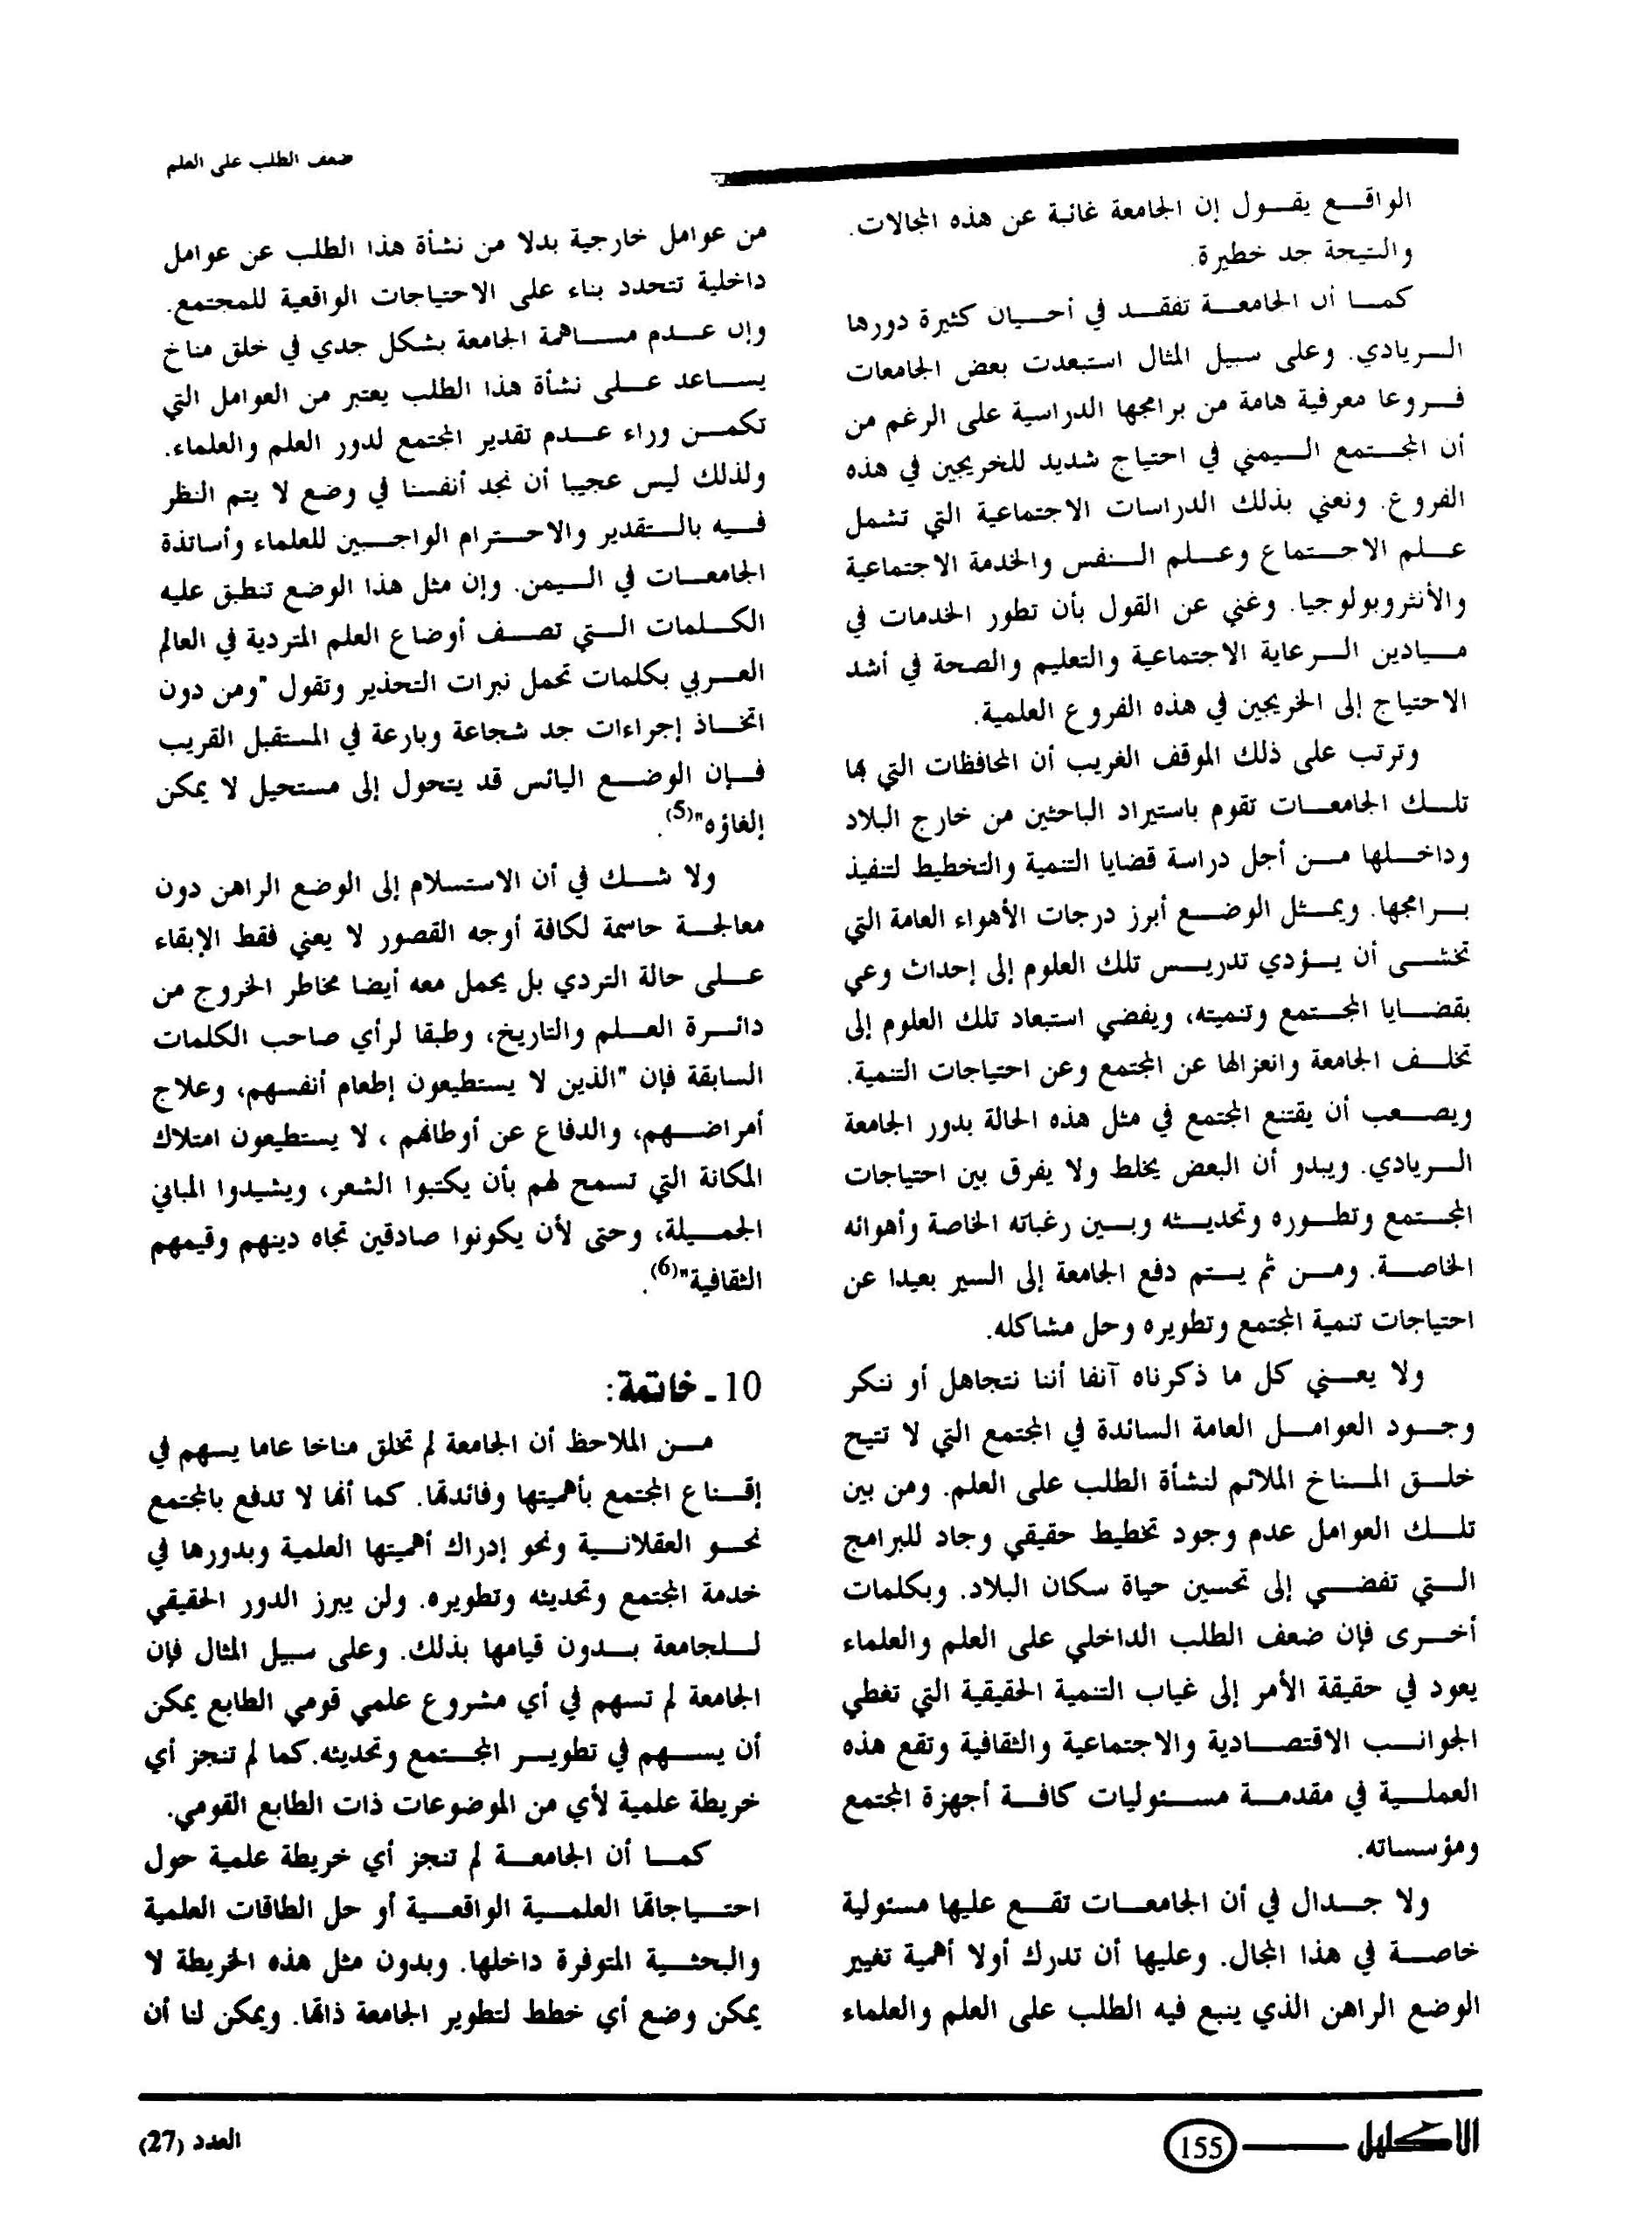 ضعف الطلب على العلم
الواقع يقول إن الجامعة غائبة عن هذه المجالات.
والنتيحة جد خطيرة.
كما أن الجامعة تفقد في أحيان كثيرة دورها
الريادي. وعلى سبيل المثال استبعدت بعض الجامعات
فروعا معرفية هامة من برامجها الدراسية على الرغم من
أن المجتمع اليمني في احتياج شديد للخريجين في هذه
الفروع. ونعني بذلك الدراسات الاجتماعية التي تشمل
علم الاجتماع وعلم النفس والخدمة الاجتماعية
والأنثروبولوجيا. وغني عن القول بأن تطور الخدمات في
ميادين الرعاية الاجتماعية والتعليم والصحة في أشد
الاحتياج إلى الخريجين في هذه الفروع العلمية.
وترتب على ذلك الموقف الغريب أن المحافظات التي بها
تلك الجامعات تقوم باستيراد الباحثين من خارج البلاد
وداخلها من أجل دراسة قضايا التنمية والتخطيط لتنفيذ
برامجها. ويمثل الوضع أبرز درجات الأهواء العامة التي
تخشى أن يؤدي تدريس تلك العلوم إلى إحداث وعي
بقضايا المجتمع وتنميته، ويفضي استبعاد تلك العلوم إلى
تخلف الجامعة وانعزالها عن المجتمع وعن احتياجات التنمية.
ويصعب أن يقتنع المجتمع في مثل هذه الحالة بدور الجامعة
الريادي. ويبدو أن البعض يخلط ولا يفرق بين احتياجات
المجتمع وتطوره وتحديثه وبين رغباته الخاصة وأهوائه
الخاصة. ومن ثم يتم دفع الجامعة إلى السير بعيدا عن
احتياجات تنمية المجتمع وتطويره وحل مشاكله.
ولا يعني كل ما ذكرناه آنفا أننا نتجاهل أو ننكر
وجود العوامل العامة السائدة في المجتمع التي لا تتيح
خلق المناخ الملائم لنشأة الطلب على العلم. ومن بين
تلك العوامل عدم وجود تخطيط حقيقي وجاد للبرامج
التي تفضي إلى تحسين حياة سكان البلاد. وبكلمات
أخرى فإن ضعف الطلب الداخلي على العلم والعلماء
يعود في حقيقة الأمر إلى غياب التنمية الحقيقية التي تغطي
الجوانب الاقتصادية والاجتماعية والثقافية وتقع هذه
العملية في مقدمة مسئوليات كافة أجهزة المجتمع
ومؤسساته.
ولا جدال في أن الجامعات تقع عليها مسئولية
خاصة في هذا المجال. وعليها أن تدرك أولا أهمية تغيير
الوضع الراهن الذي ينبع فيه الطلب على العلم والعلماء
من عوامل خارجية بدلا من نشأة هذا الطلب عن عوامل
داخلية تتحدد بناء على الاحتياجات الواقعية للمجتمع.
وإن عدم مساهمة الجامعة بشكل جدي في خلق مناخ
يساعد على نشأة هذا الطلب يعتبر من العوامل التي
تكمن وراء عدم تقدير المجتمع لدور العلم والعلماء.
ولذلك ليس عجيبا أن نجد أنفسنا في وضع لا يتم النظر
فيه بالتقدير والاحترام الواجبين للعلماء وأساتذة
الجامعات في اليمن. وإن مثل هذا الوضع تنطبق عليه
الكلمات التي تصف أوضاع العلم المتردية في العالم
العربي بكلمات تحمل نبرات التحذير وتقول "ومن دون
اتخاذ إجراءات جد شجاعة وبارعة في المستقبل القريب
فإن الوضع اليائس قد يتحول إلى مستحيل لا يمكن
إلغاؤه"(5).
ولا شك في أن الاستسلام إلى الوضع الراهن دون
معالجة حاسمة لكافة أوجه القصور لا يعني فقط الإبقاء
على حالة التردي بل يحمل معه أيضا مخاطر الخروج من
دائرة العلم والتاريخ، وطبقا لرأي صاحب الكلمات
السابقة فإن "الذين لا يستطيعون إطعام أنفسهم، وعلاج
أمراضهم، والدفاع عن أوطانهم ، لا يستطيعون امتلاك
المكانة التي تسمح لهم بأن يكتبوا الشعر، ويشيدوا المباني
الجميلة، وحتى لأن يكونوا صادقين تجاه دينهم وقيمهم
الثقافية"(6).
10 ـ خاتمة:
من الملاحظ أن الجامعة لم تخلق مناخا عاما يسهم في
إقناع المجتمع بأهميتها وفائدتها. كما أنها لا تدفع بالمجتمع
نحو العقلانية ونحو إدراك أهميتها العلمية وبدورها في
خدمة المجتمع وتحديثه وتطويره. ولن يبرز الدور الحقيقي
للجامعة بدون قيامها بذلك. وعلى سبيل المثال فإن
الجامعة لم تسهم في أي مشروع علمي قومي الطابع يمكن
أن يسهم في تطوير المجتمع وتحديثه. كما لم تنجز أي
خريطة علمية لأي من الموضوعات ذات الطابع القومي.
كما أن الجامعة لم تنجز أي خريطة علمية حول
احتياجاتها العلمية الواقعية أو حل الطاقات العلمية
والبحثية المتوفرة داخلها. وبدون مثل هذه الخريطة لا
يمكن وضع أي خطط لتطوير الجامعة ذاتها. ويمكن لنا أن
الاكليل
155
العدد (27)